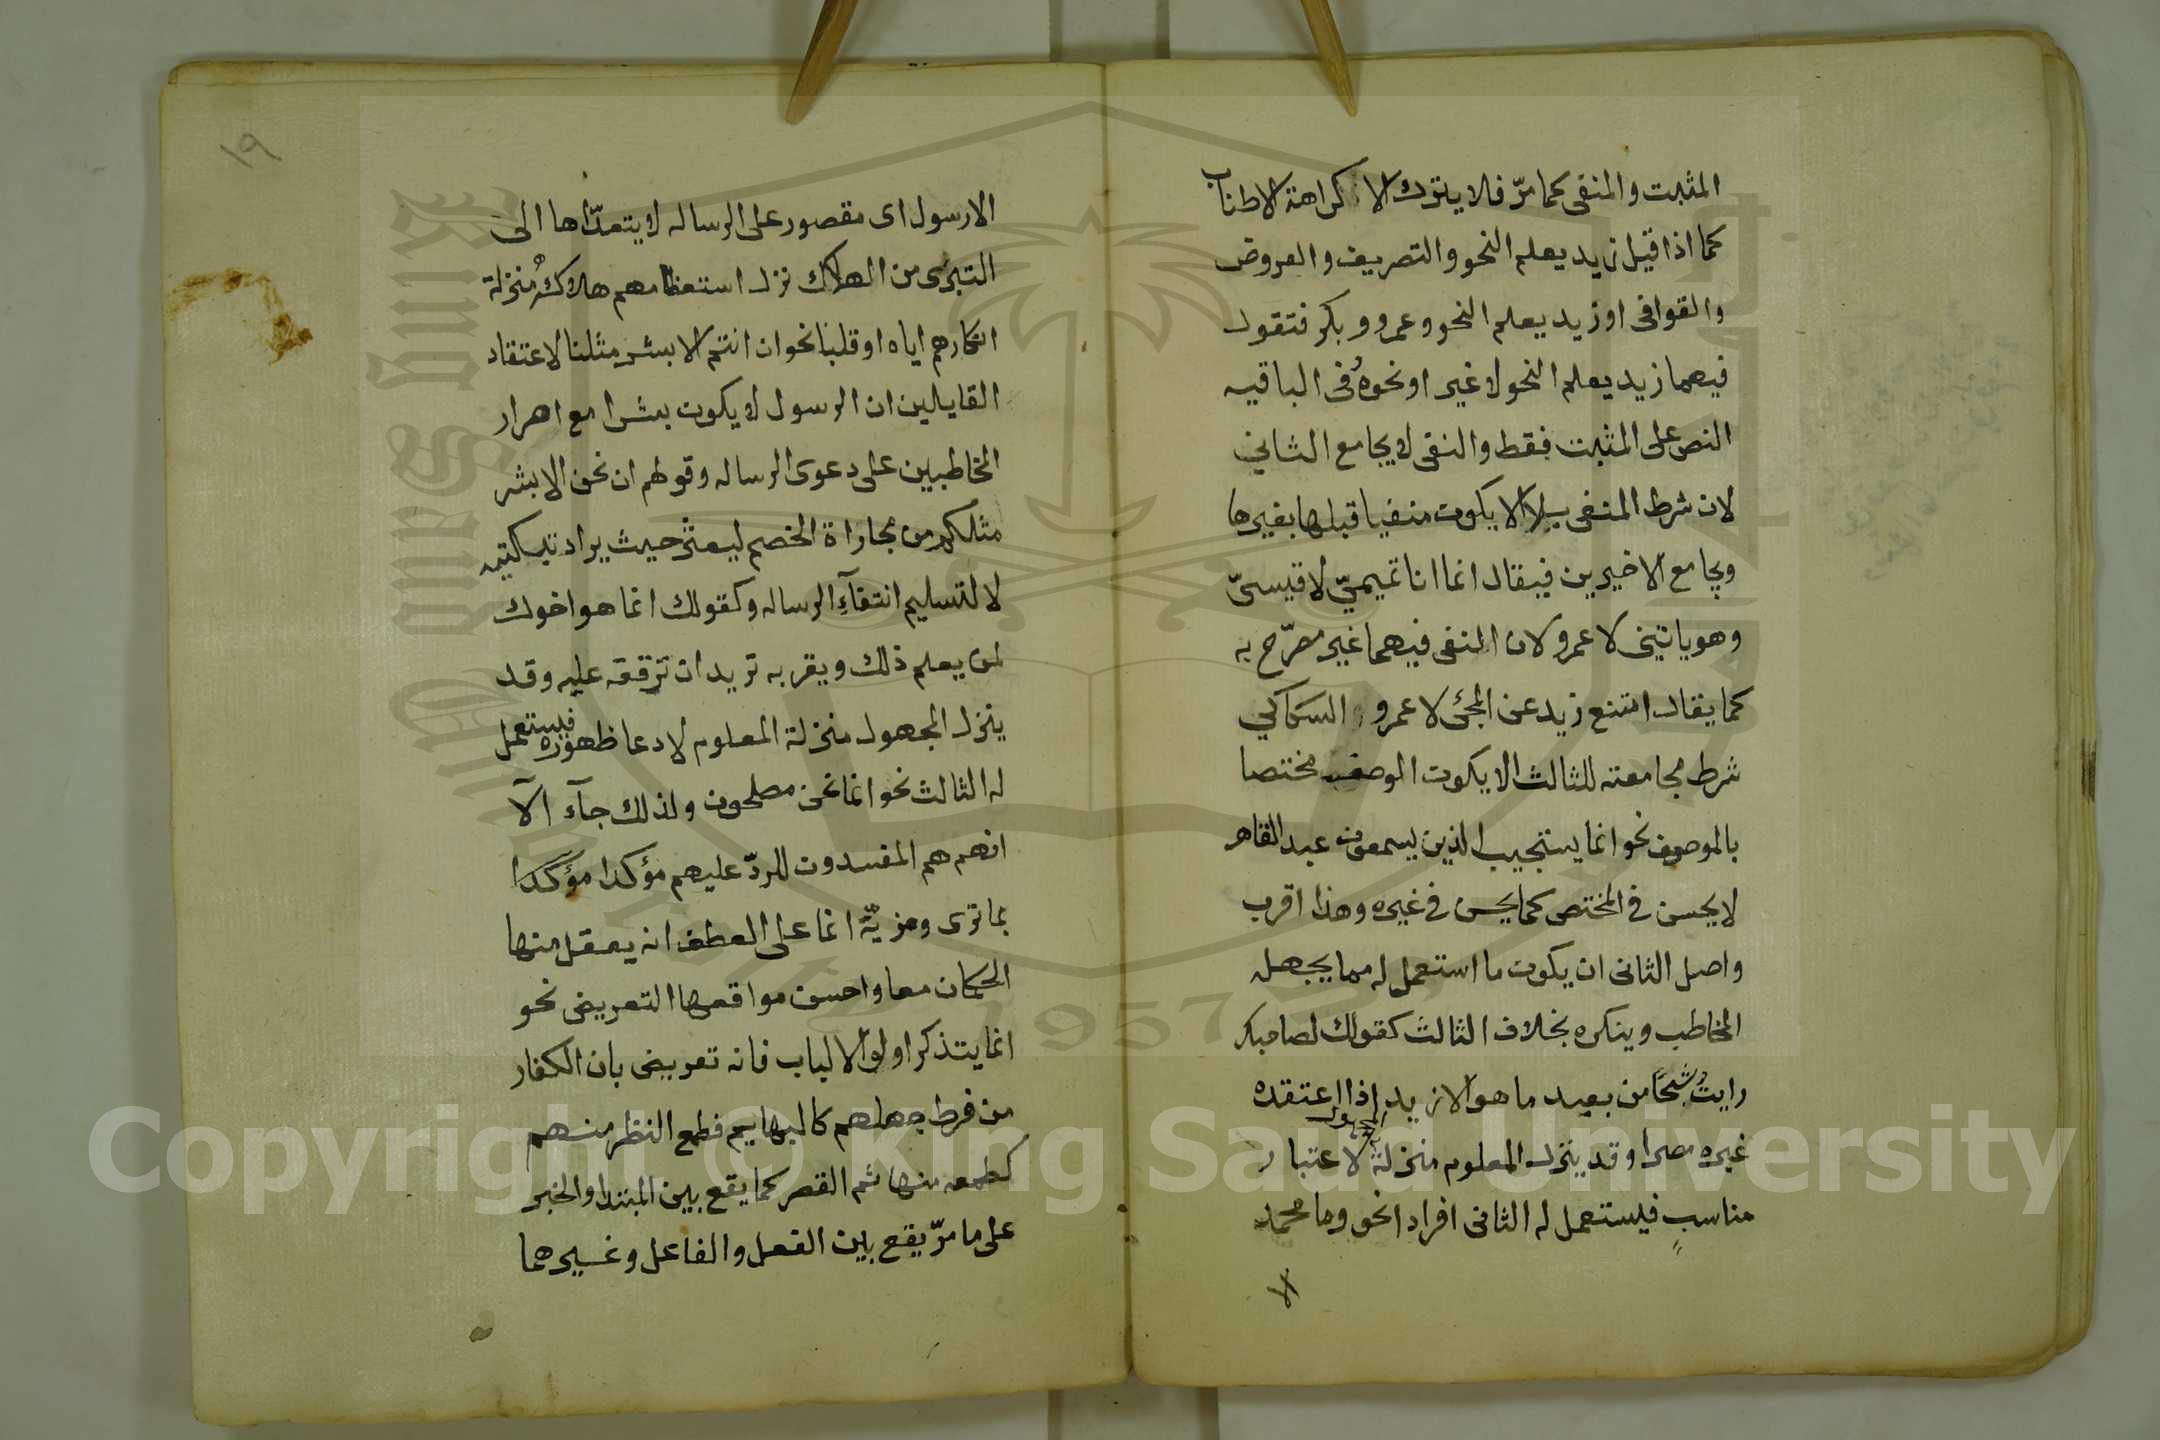 المثبت والمنفى كما مرّ فلا يترك الا كراهة الاطناب
كما اذا قيل زيد يعلم النحو والتصريف والعروض
والقوافى او زيد يعلم النحو وعمرو وبكر فتقول
فيهما زيد يعلم النحو لا غير او نحوهُ فى الباقيه
النص على المثبت فقط والنفى لا يجامع الثاني
لان شرط المنفى بلا الا يكون منفيا قبلها بغيرها
ويجامع الاخيرين فيقال انما انا تميميّ لا قيسىّ
وهو ياتينى لا عمرو لان المنفى فيهما غير مصرّح به
كما يقال امتنع زيد عن المجئ لا عمرو السكاكي
شرط مجامعته للثالث الا يكون الوصف مختصا
بالموصوف نحو انما يستجيب الذين يسمعون عبد القاهر
لا يحسن في المختص كما يحسن في غيره وهذا اقرب
واصل الثانى ان يكون ما استعمل له مما يجهله
المخاطب وينكره بخلاف الثالث كقولك لصاحبك
رايت شبحًا من بعيد ما هو الا زيد اذا اعتقده
غيره مصرا وقد ينزل المعلوم منزلة المجهول لاعتبار
مناسبٍ فيستعمل له الثانى افرادا نحو وما محمد
الا
١٩
الا رسول اى مقصور على الرساله لا يتعدّاها الى
التبرّى من الهلاك نزل استعظامهم هلاكهُ منزلة
انكارهم اياه او قلبا نحو ان انتم الا بشر مثلنا لاعتقاد
القايلين ان الرسول لا يكون بشرا مع اصرار
المخاطبين على دعوى الرساله وقولهم ان نحن الا بشر
مثلكم من مجاراة الخصم ليعثر حيث يراد تبكيته
لا لتسليم انتفآء الرساله وكقولك انما هو اخوك
لمن يعلم ذلك ويقر به تريد ان ترققه عليه وقد
ينزل المجهول منزلة المعلوم لادعا ظهوره فيستعمل
له الثالث نحو انما نحن مصلحون ولذلك جآء الآ
انهم هم المفسدون للردّ عليهم مؤكدا مؤكّدا
بما ترى ومزيّة انما على العطف انه يعقل منها
الحكمان معا واحسن مواقعها التعريض نحو
انما يتذكر اولوا الالباب فانه تعريض بان الكفار
من فرط جهلهم كالبهايم فطمع النظر منهم
كطمعه منها ثم القصر كما يقع بين المبتدا والخبر
على ما مرّ يقع بين الفعل والفاعل وغيرهما
Copyright © King Saud University
King Saud University
1957